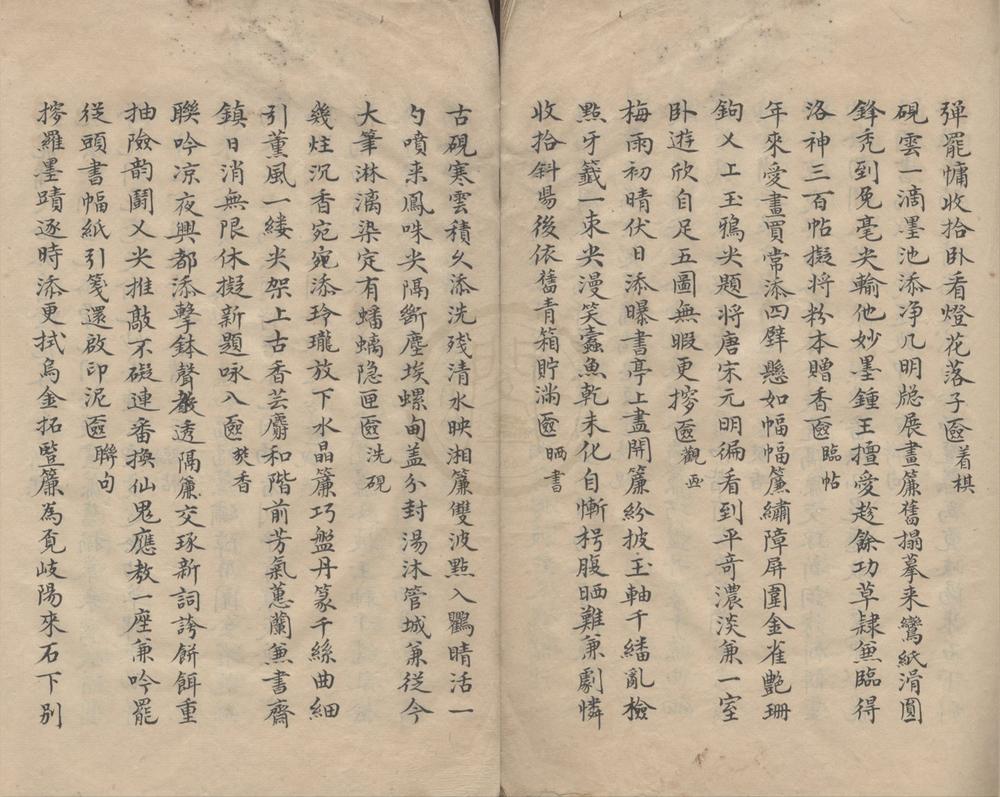 弹罷慵收拾卧看燈花落子奩着棋
硯雲一滴墨池添净几明牕展畫簾舊搨摹来鸞紙滑圓
鋒秃到兔毫尖輸他妙墨鍾王擅愛趁餘功草隷兼臨得
洛神三百帖擬将粉本贈香奩臨帖
年來愛畫買常添四壁懸如幅幅簾繡障屏圍金雀艷珊
鉤乂上玉鴉尖題将唐宋元明徧看到平竒濃淡兼一室
卧遊欣自足五圖無暇更撏奩觀画
梅雨初晴伏日添曝書亭上盡開簾紛披玉軸千繙亂檢
點牙籤一束尖漫笑蠧魚乾未化自慚枵腹晒難兼劇憐
收拾斜陽後依舊青箱貯滿奩晒書
古硯寒雲積久添洗残清水映湘簾雙波點入鸜睛活一
勺噴来鳳咮尖隔斷塵埃螺甸盖分封湯沐管城兼從今
大筆淋漓染定有蟠螭隐匣奩洗硯
幾炷沉香宛宛添玲瓏放下水晶簾巧盤丹篆千絲曲細
引薫風一縷尖架上古香芸麝和階前芳氣蕙蘭兼書齋
鎮日消無限休擬新題咏入奩焚香
聯吟凉夜興都添擊鉢聲嚴透隔簾交琢新詞誇餅餌重
抽險韵鬪乂尖推敲不礙連番換仙鬼應教一座兼吟罷
從頭書幅紙引箋還啟印泥奩聯句
撏羅墨蹟逐時添更拭烏金拓䀾簾為覓岐陽來石下别